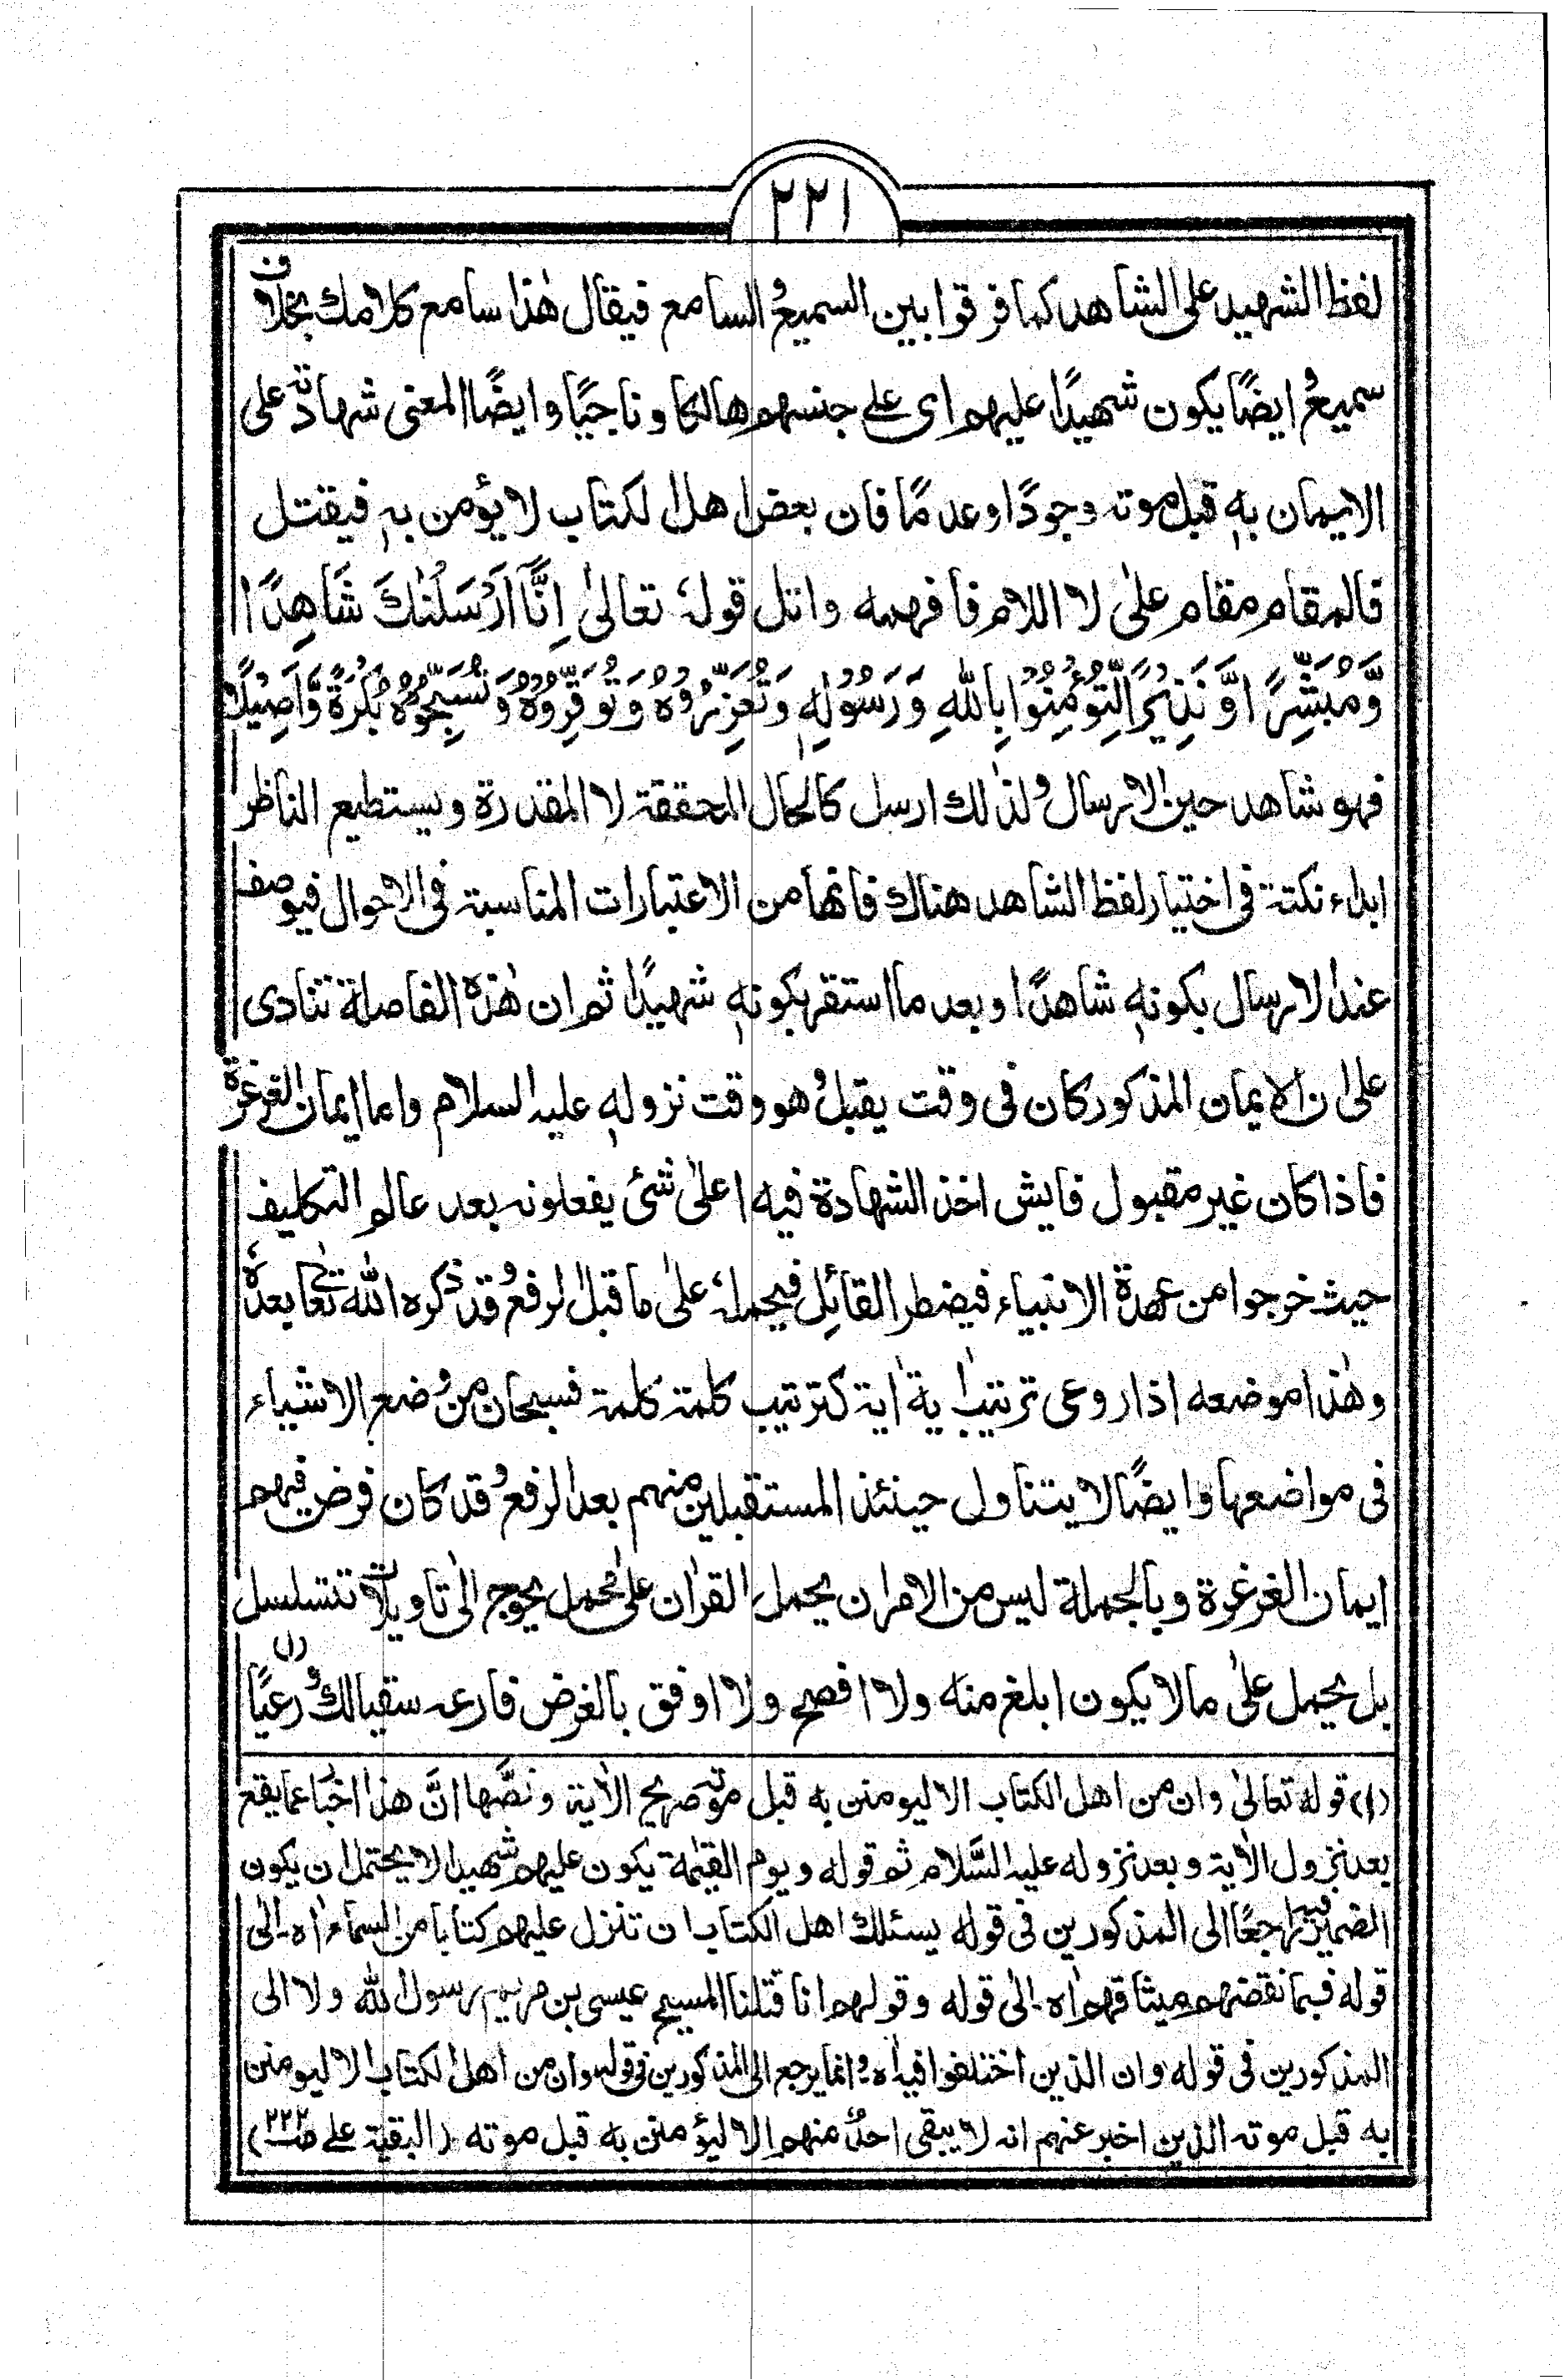 ٢٢١
لفظ الشهيد على الشاهد كما فرقوا بين السميع والسامع فيقال هٰذا سامع كلامك بخلاف
سميع وايضًا يكون شهيدًا عليهم اى علے جنسهم هالكا وناجيًا وايضًا المعنى شهادته على
الايمان بهٖ قبل موته وجودًا وعدمًا فان بعض اهل الكتاب لا يؤمن بهٖ فيقتل
فالمقام مقام علىٰ لا اللام فافهمه واتل قولهٗ تعالىٰ اِنَّآ اَرْسَلْنٰكَ شَاهِدًا
وَّمُبَشِّرًا وَّنَذِيْرًا لِّتُؤْمِنُوْا بِاللّٰهِ وَرَسُوْلِهٖ وَتُعَزِّرُوْهُ وَتُوَقِّرُوْهُ وَتُسَبِّحُوْهُ بُكْرَةً وَّاَصِيْلًا
فهو شاهد حين الارسال ولذٰلك ارسل كالحال المحققة لا المقدرة ويستطيع الناظر
ابداء نكتة فى اختيار لفظ الشاهد هناك فانها من الاعتبارات المناسبة فى الاحوال فيوصف
عند الارسال بكونهٖ شاهدًا وبعد ما استقر بكونهٖ شهيدًا ثم ان هٰذه الفاصلة تنادى
علىٰ ان الايمان المذكور كان فى وقت يقبل وهو وقت نزولهٖ عليه السلام واما ايمان الغرغرة
فاذا كان غير مقبول فايش اخذ الشهادة فيه اعلىٰ شئ يفعلونه بعد عالم التكليف
حيث خرجوا من عهدة الانبياء فيضطر القائل فيحملهٗ علىٰ ما قبل الرفع وقد ذكره الله تعا بعدهٗ
وهٰذا موضعه اذا روعى ترتيب اٰية اٰية كترتيب كلمة كلمة فسبحان من وضع الاشياء
فى مواضعها وايضًا لا يتناول حينئذ المستقبلين منهم بعد الرفع وقد كان فرض فيهم
ايمان الغرغرة وبالجملة ليس من الامر ان يحمل القراٰن علىٰ محمل يحوج الىٰ تاويلات تتسلسل
بل يحمل علىٰ ما لا يكون ابلغ منه ولا افصح ولا اوفق بالغرض فارعه سقيا لك ورعيًا (١)
(١) قوله تعالىٰ وان من اهل الكتاب الا ليومنن به قبل موته صريح الاٰية ونصّها انَّ هذا اخبا عما يقع
بعد نزول الاٰية وبعد نزوله عليه السَّلام ثم قوله ويوم القيٰمة يكون عليهم شهيدا لا يحتمل ان يكون
الضمير فيه راجعًا الى المذكورين فى قوله يسئلك اهل الكتاب ان تنزل عليهم كتابا من السماء اٰه ـ الىٰ
قوله فبما نقضهم ميثاقهم اٰه ـ الىٰ قوله وقولهم انا قتلنا المسيح عيسى بن مريم رسول الله ولا الى
المذكورين فى قوله وان الذين اختلفوا فيه اٰه وانما يرجع الى المذكورين فى قوله وان من اهل الكتاب الا ليومنن
به قبل موته الذين اخبر عنهم انه لا يبقى احدٌ منهم الا ليؤمنن به قبل موته (البقية علے صـ ٢٢٢)